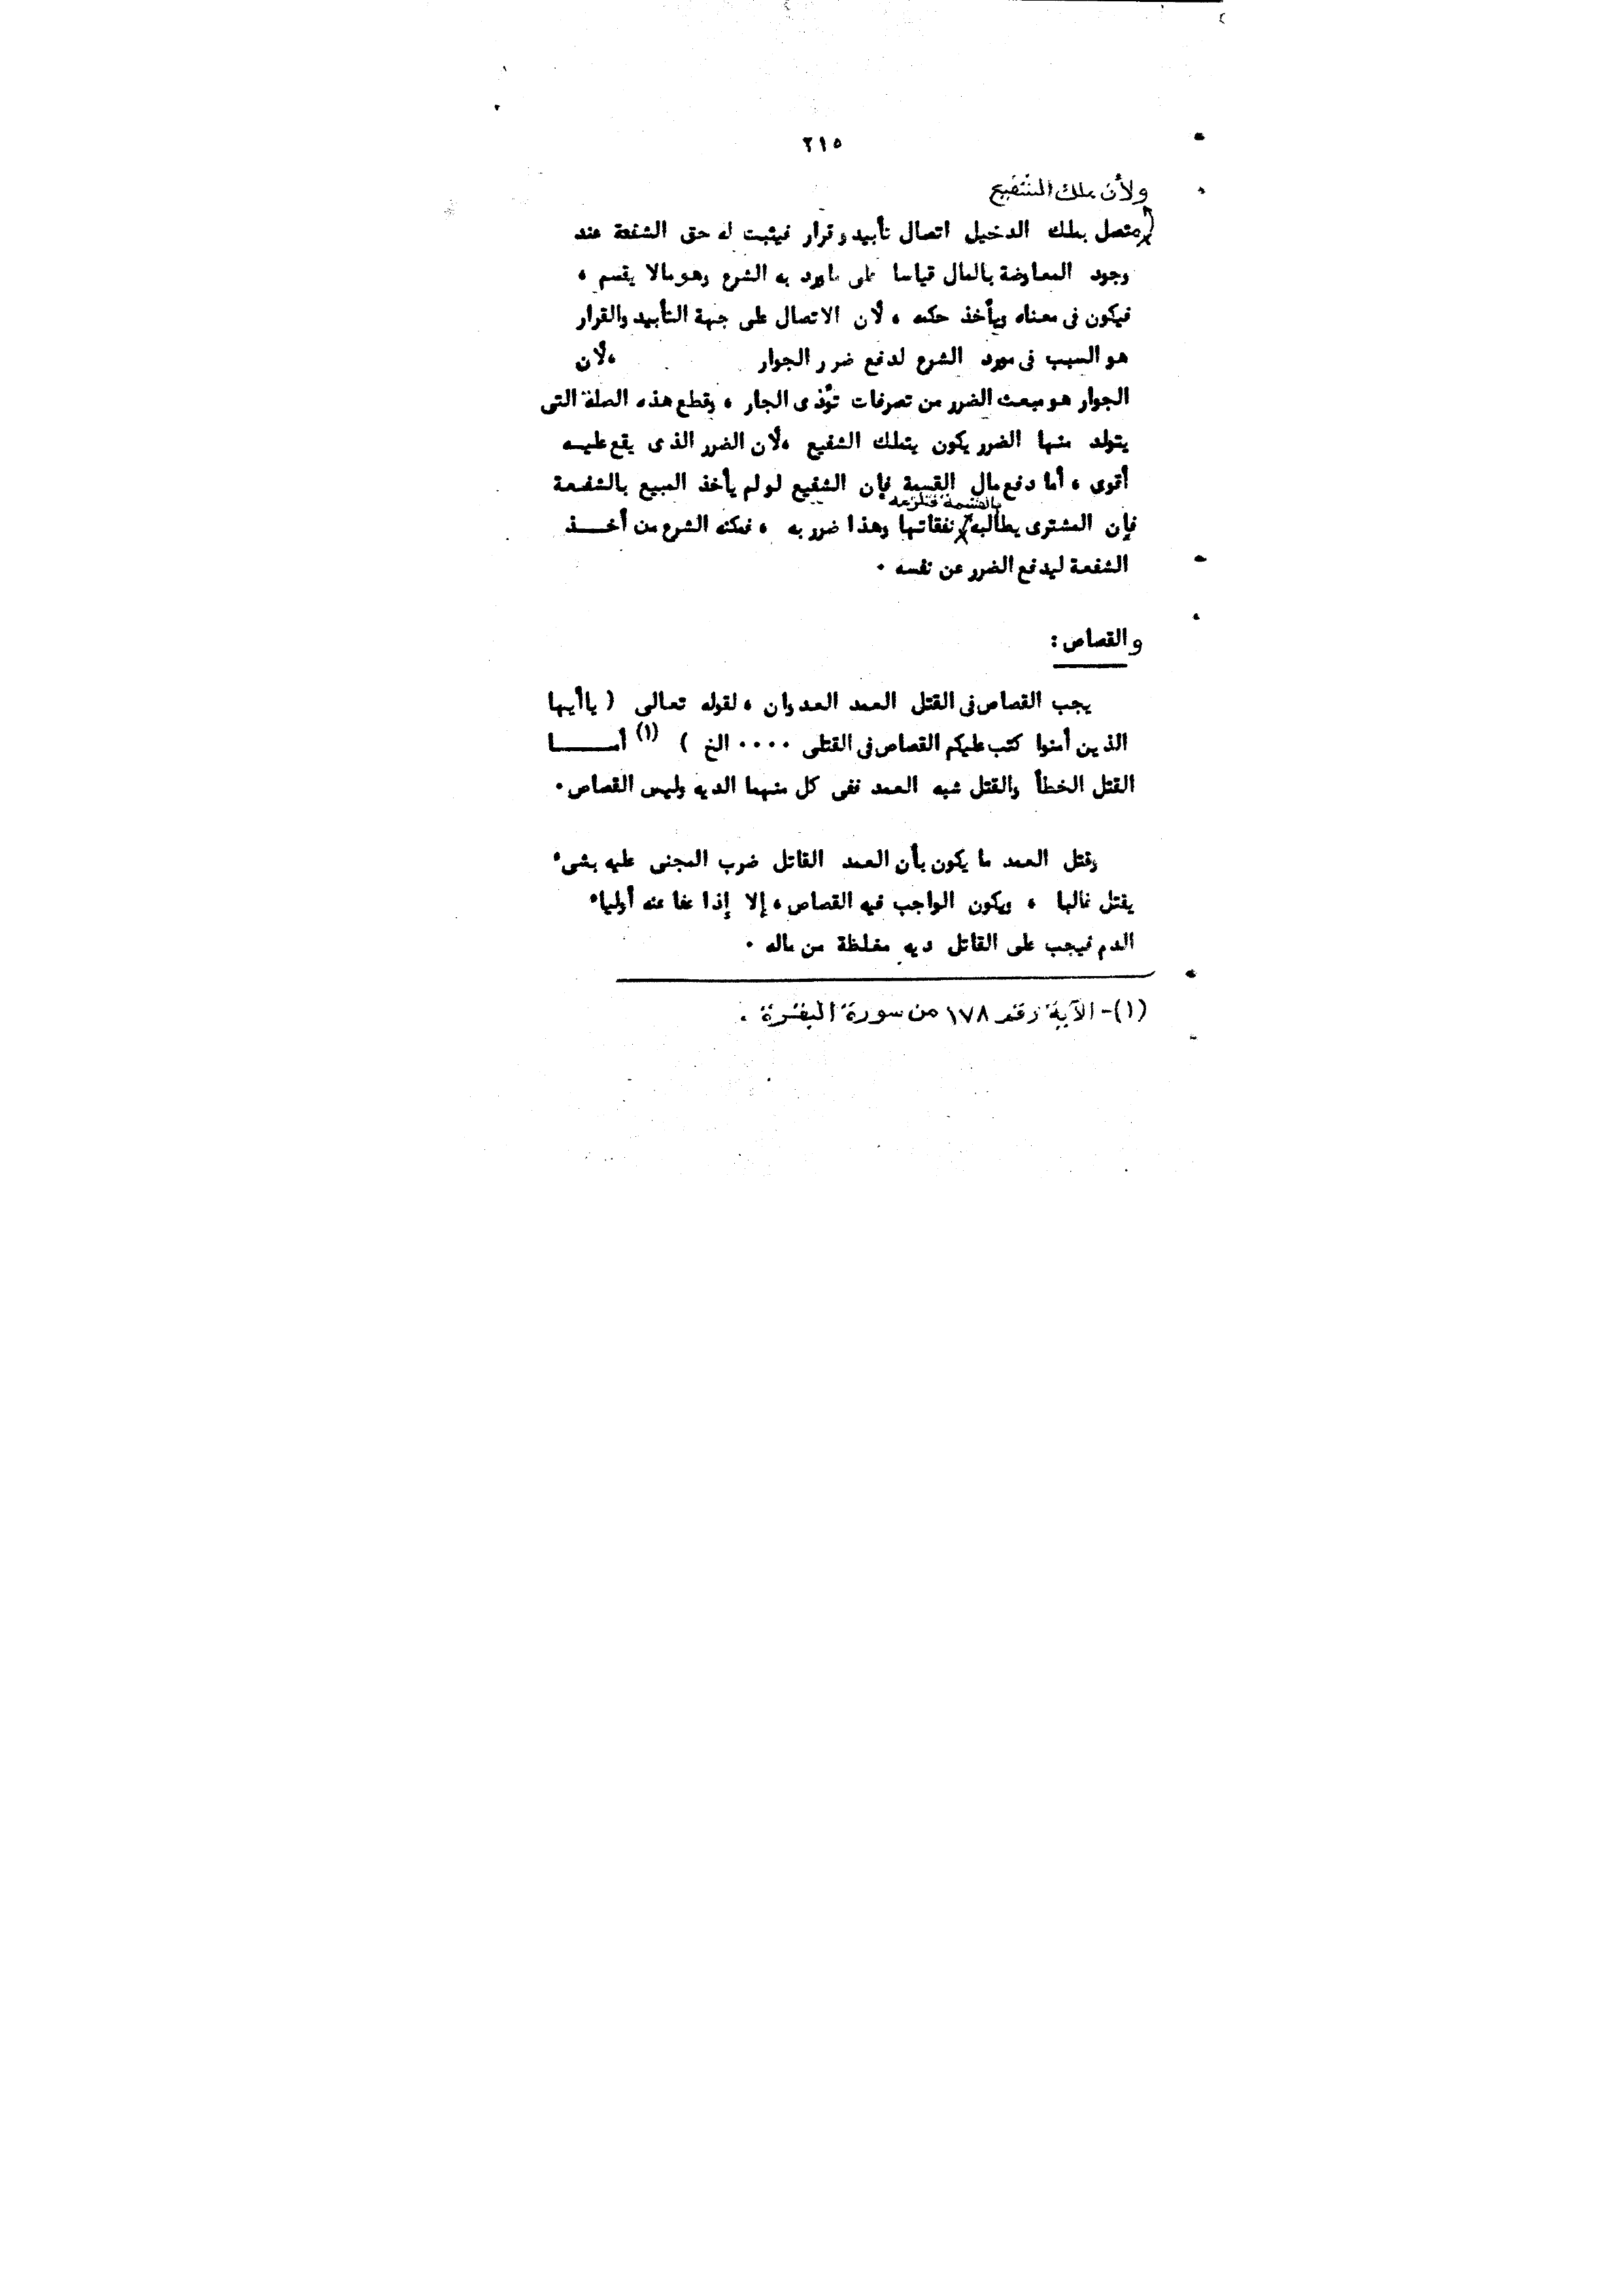 ٢١٥
ولأن ملك الشفيع
متصل بملك الدخيل اتصال تأبيد وقرار فيثبت له حق الشفعة عند
وجود المعاوضة بالمال قياسا على مايرد به الشرع وهو مالا يقسم ،
فيكون فى معناه ويأخذ حكمه ، لأن الاتصال على جهة التأبيد والقرار
هو السبب فى مورد الشرع لدفع ضرر الجوار ، لأن
الجوار هو مبعث الضرر من تصرفات تؤذى الجار ، وقطع هذه الصلة التى
يتولد منها الضرر يكون يتملك الشفيع ، لأن الضرر الذى يقع عليــه
أقوى ، أما دفع مال القسمة فإن الشفيع لو لم يأخذ المبيع بالشفعة
بالقسمة فتلزمه
فإن المشترى يطالبه نفقاتها وهذا ضرر به ، فمكنه الشرع من أخـــذ
الشفعة ليدفع الضرر عن نفسه .
والقصاص :
يجب القصاص فى القتل العمد العدوان ، لقوله تعالى ( ياأيها
الذين أمنوا كتب عليكم القصاص فى القتلى .... الخ ) (١) أمـــــا
القتل الخطأ والقتل شبه العمد ففى كل منهما الديه وليس القصاص .
وقتل العمد ما يكون بأن العمد القاتل ضرب المجنى عليه بشىء
يقتل غالبا ، ويكون الواجب فيه القصاص ، إلا إذا عفا عنه أولياء
الدم فيجب على القاتل ديه مغلظة من ماله .
(١)- الآية رقم ١٧٨ من سورة البقرة .